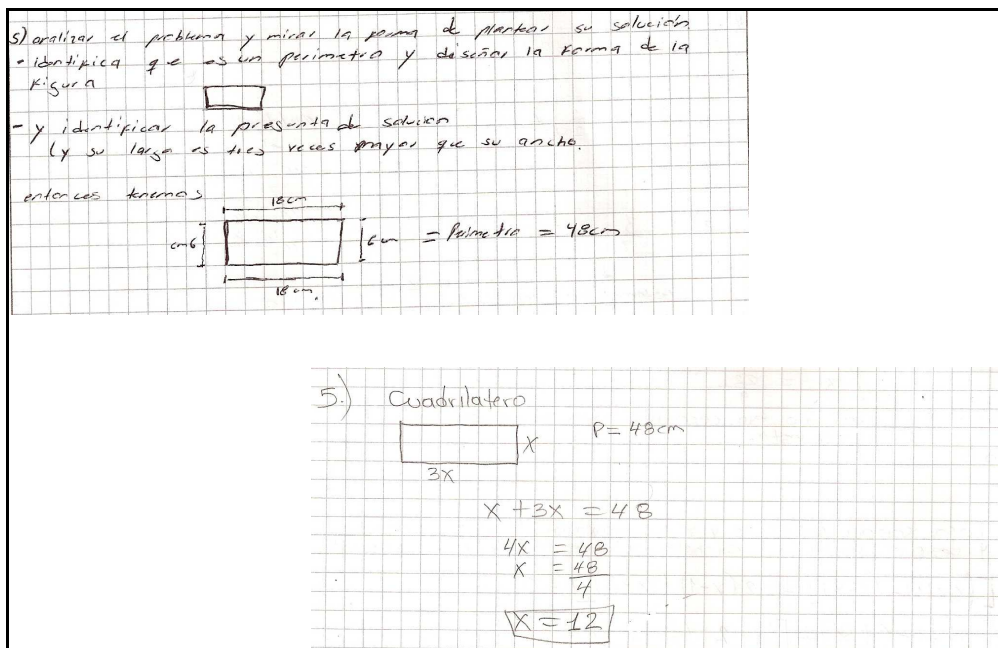 5) analizar el problema y mirar la forma de plantear su solución.
- identifica que es un perimetro y diseñar la forma de la
figura
- y identificar la pregunta de solucion
(y su largo es tres veces mayor que su ancho.
entonces tenemos
18cm
cm6
6cm = Perimetro = 48cm
18cm.
5.) Cuadrilatero
P= 48cm
X
3X
X + 3X = 48
4X = 48
X = 48
4
X = 12